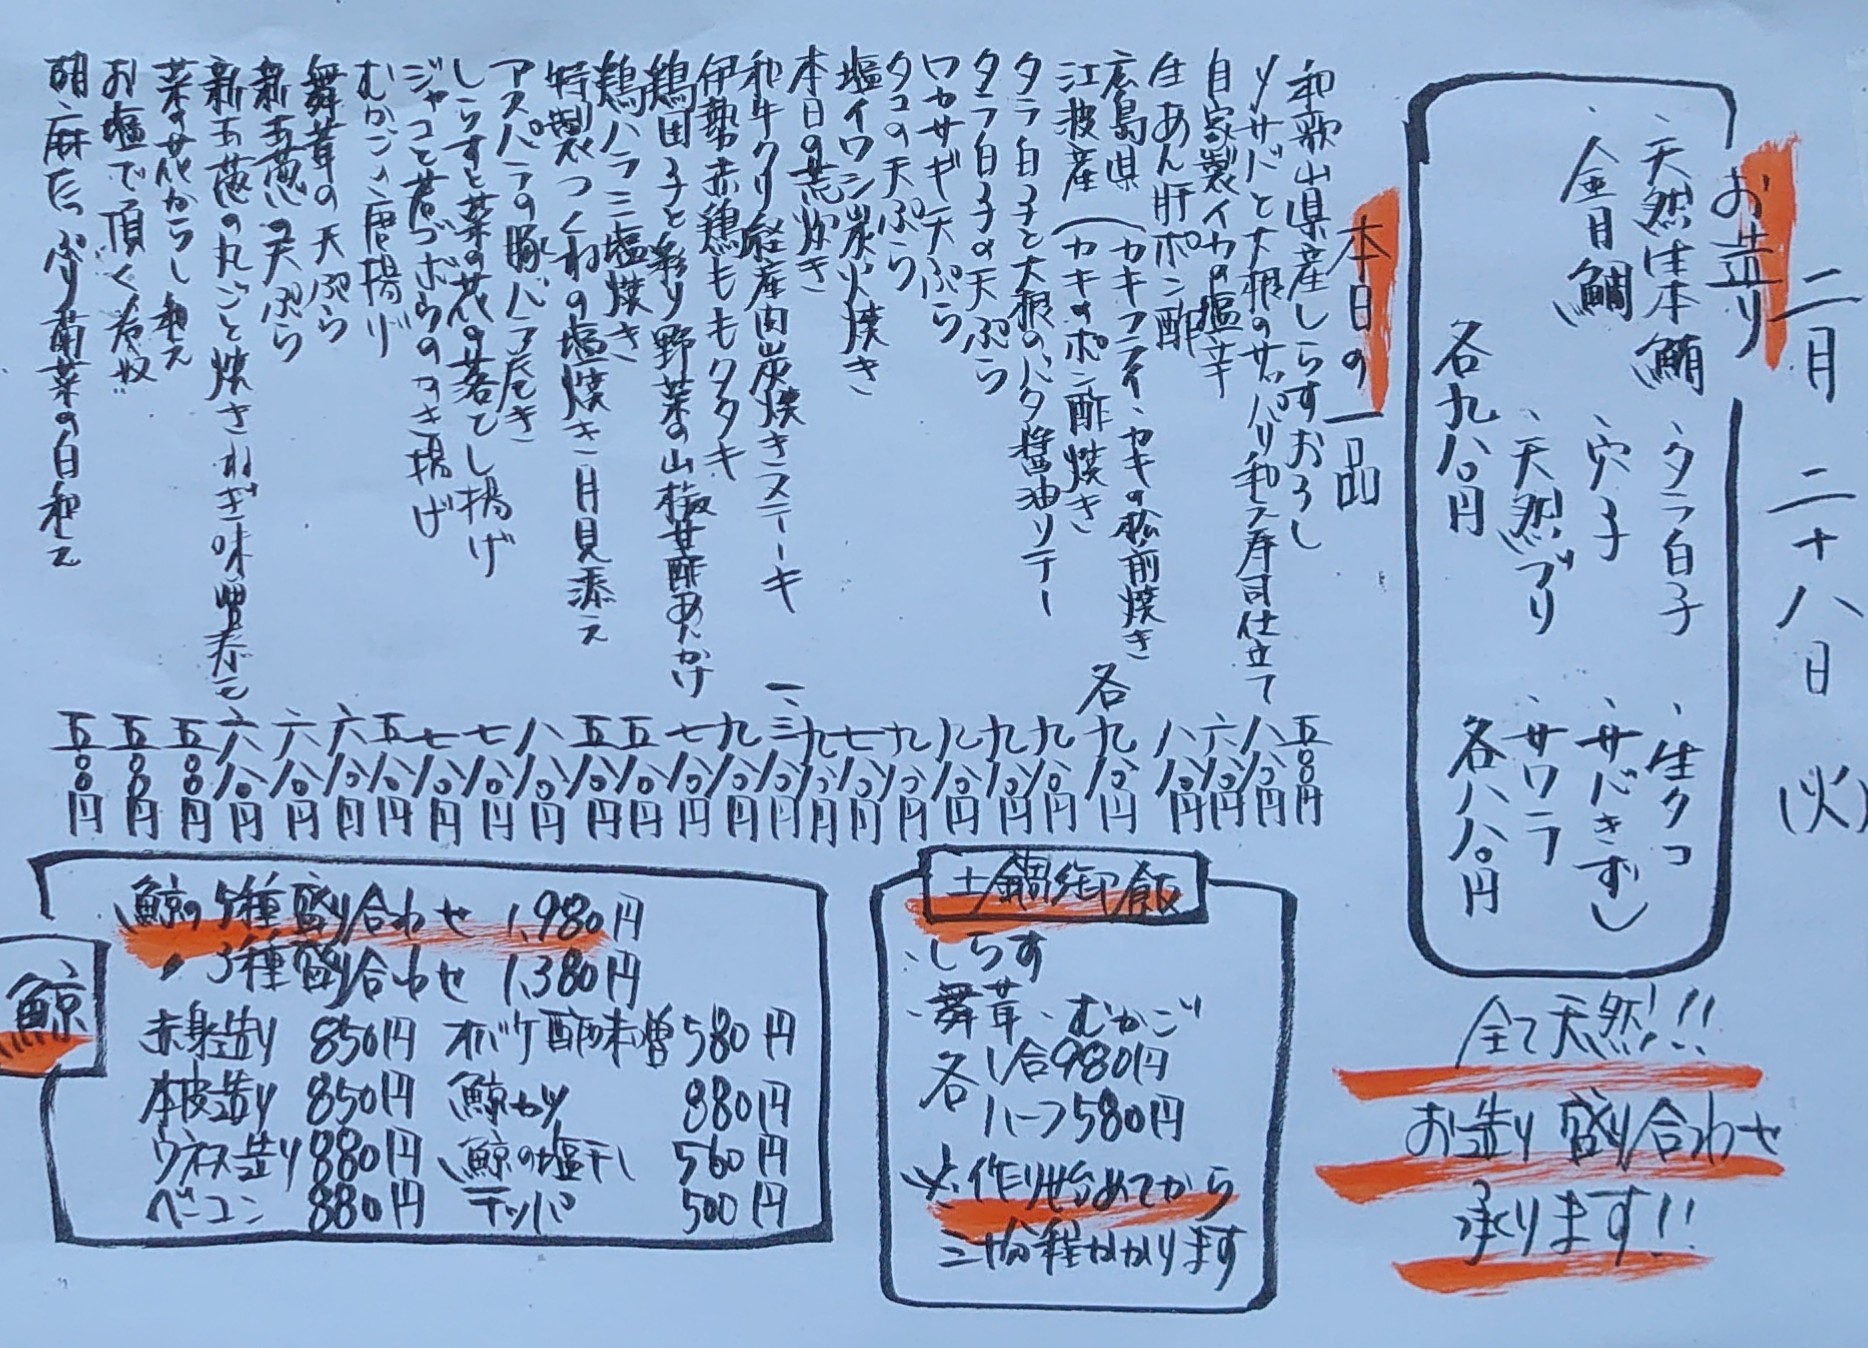 二月二十八日(火)
お造り
、天然生本鮪
、金目鯛
各九八〇円
、タラ白子
、穴子
、天然ブリ
、生タコ
、サバきずし
、サワラ
各八八〇円
全て天然!!
お造り盛り合わせ
承ります!!
本日の一品
和歌山県産しらすおろし 五〇〇円
〆サバと大根のサッパリ和え寿司仕立て 八八〇円
自家製イカの塩辛 六八〇円
生あん肝ポン酢 八八〇円
広島県(カキフライ、カキの松前焼き
江波産(カキのポン酢焼き 各九八〇円
タラ白子と大根のバタ醤油ソテー 九八〇円
タラ白子の天ぷら 九八〇円
ワカサギ天ぷら 九八〇円
タコの天ぷら 九八〇円
塩イワシ炭火焼き 七八〇円
本日の荒炊き 九八〇円
和牛クリ経産肉炭焼きステーキ 一、三八〇円
伊勢赤鶏ももタタキ 九八〇円
鶏団子と彩り野菜の山椒甘酢あんかけ 七八〇円
鶏ハラミ塩焼き 五八〇円
特製つくねの塩焼き 月見添え 五八〇円
アスパラの豚バラ巻き 八八〇円
しらすと菜の花の落とし揚げ 七八〇円
ジャコと若ゴボウのかき揚げ 七八〇円
むかごの唐揚げ 五八〇円
舞茸の天ぷら 六八〇円
新玉葱の天ぷら 六八〇円
新玉葱の丸ごと焼き ねぎ味噌添え 六八〇円
菜の花からし和え 五八〇円
お塩で頂く冷奴 五〇〇円
胡麻たっぷり菊菜の白和え 五〇〇円
土鍋御飯
、しらす
、舞茸、むかご
各 1合980円
ハーフ580円
※作り始めてから
三十分程かかります
鯨
鯨の5種盛り合わせ 1,980円
〃 3種盛り合わせ 1,380円
赤身造り 850円 オバケ酢味噌 580円
本皮造り 850円 鯨カツ 880円
ウネス造り 880円 鯨の塩干し 560円
ベーコン 880円 テッパ 500円